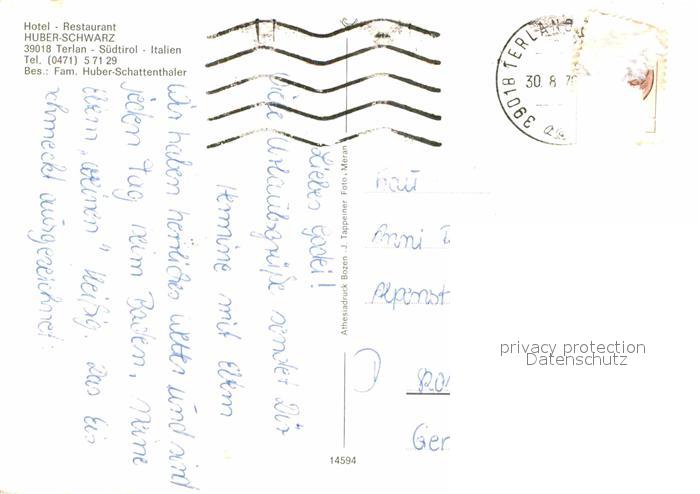 Hotel - Restaurant
HUBER-SCHWARZ
39018 Terlan - Südtirol - Italien
Tel. (0471) 5 71 29
Bes.: Fam. Huber-Schattenthaler
39018 TERLANO
30. 8. 7
Liebes
Viele Urlaubsgrüße sendet Dir
Hermine mit Eltern
Wir haben herrliches Wetter und sind
jeden Tag beim Baden, Meine
Eltern "weinen" fleißig. Das Eis
schmeckt ausgezeichnet.
Athesiadruck Bozen - J. Tappeiner Foto, Meran
Frau
Anni
Alpenst
Ger
14594
privacy protection
Datenschutz